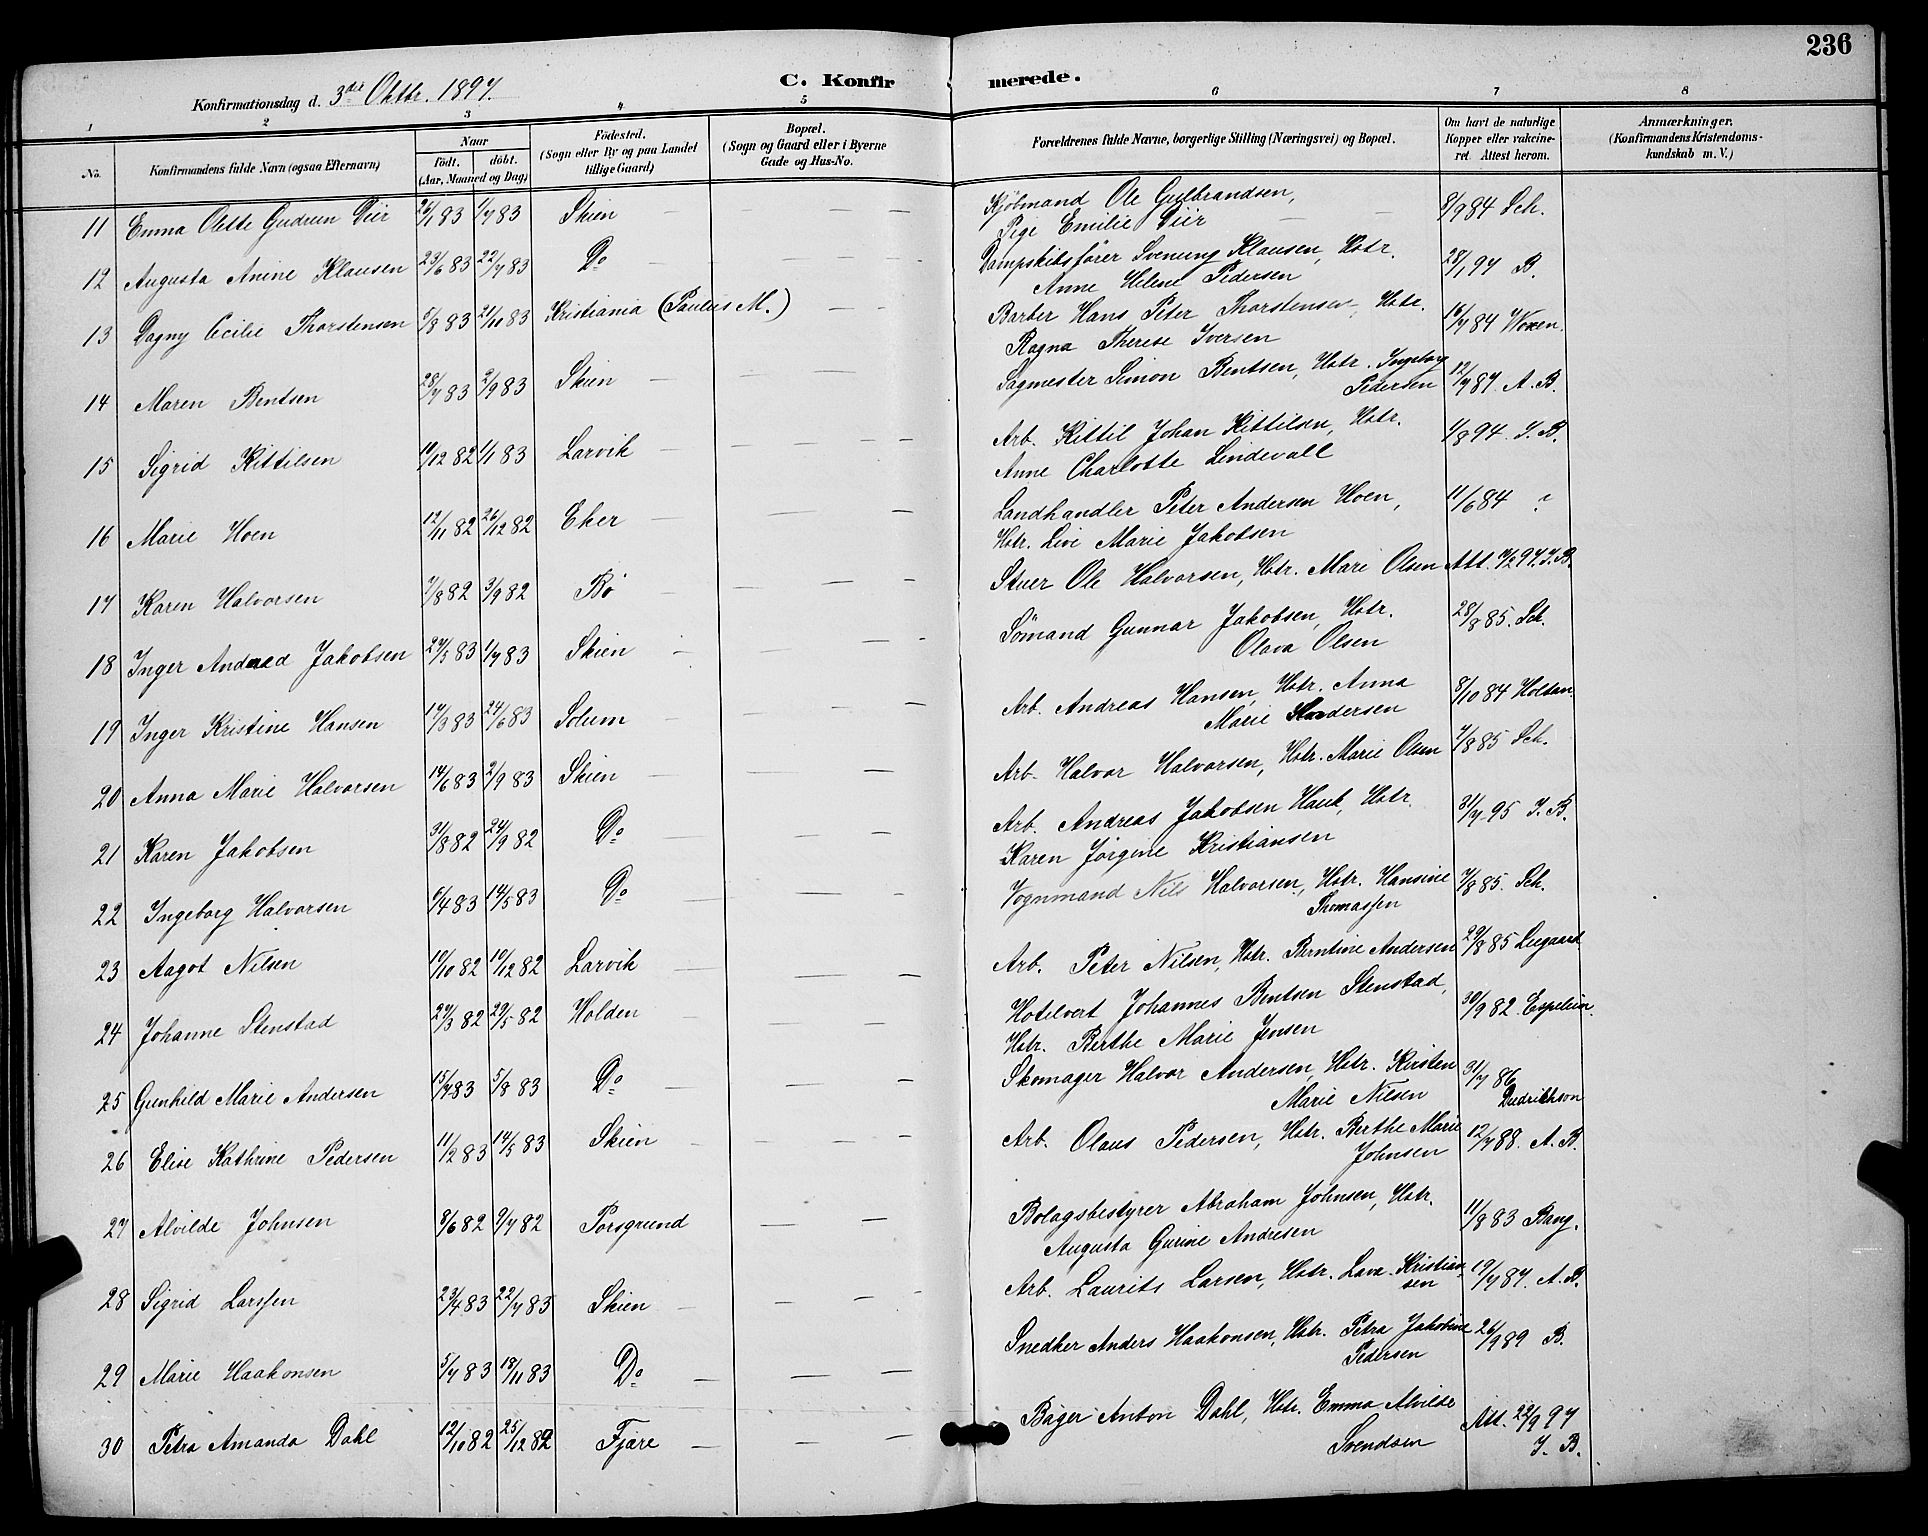 236
C. Konfirmerede.
Konfirmationsdag d. 3die Oktbr. 1897.
1 2 3 4 5 6 7 8
No. Konfirmandens fulde Navn (ogsaa Efternavn) Naar født. døbt. (Aar, Maaned og Dag) Fødested. (Sogn eller By og paa Landet tillige Gaard) Bopæl. (Sogn og Gaard eller i Byerne Gade og Hus-No. Forældrenes fulde Navne, borgerlige Stilling (Næringsvei) og Bopæl. Om havt de naturlige Kopper eller vakcineret. Attest herom. Anmærkninger. (Konfirmandens Kristendomskundskab m. V.)
11 Emma Olette Gudrun Dür 26/1 83 1/7 83 Skien — Kjøbmand Ole Gulbrandsen, 8/9 84 Sch.
Pige Emilie Dür
12 Augusta Anine Klausen 23/6 83 22/7 83 Do — Dampskibsfører Svenung Klausen, Hstr. 28/1 97 B.
Anne Helene Pedersen
13 Dagny Cecilie Thorstensen 5/8 83 21/11 83 Kristiania (Paulus M.) — Barber Hans Peter Thorstensen, Hstr. 16/7 84 Woxen.
Ragna Therese Iversen
14 Maren Bentsen 28/7 83 2/9 83 Skien — Sagmester Simon Bentsen, Hstr. Ingeborg 12/7 87. A. B.
Pedersen
15 Sigrid Kittilsen 10/12 82 1/1 83 Larvik — Arb. Kittil Johan Kittilsen, Hstr. 1/8 94. J. B.
Anne Charlotte Lindevall
16 Marie Hoen 12/11 82 26/12 82 Eker — Landhandler Peter Andersen Hoen, 11/6 84 ?
Hstr. Live Marie Jakobsen
17 Karen Halvorsen 7/8 82 3/9 82 Bø — Stuer Ole Halvorsen, Hstr. Mari Olsen Att. 11/2 97. J. B.
18 Inger Andrea Jakobsen 27/5 83 1/7 83 Skien — Sømand Gunnar Jakobsen, Hstr. 28/8 85. Sch.
Olava Olsen
19 Inger Kristine Hansen 17/3 83 24/6 83 Solum — Arb. Andreas Hansen, Hstr. Anna 8/10 84 Holtan.
Marie Andersen
20 Anna Marie Halvorsen 14/6 83 2/9 83 Skien — Arb. Halvor Halvorsen, Hstr. Marie Olsen 7/8 85 Sch.
21 Karen Jakobsen 31/8 82 24/9 82 Do — Arb. Andreas Jakobsen Hauk, Hstr. 31/7 95 J. B.
Karen Jørgine Kristiansen
22 Ingeborg Halvorsen 6/4 83 14/5 83 Do — Vognmand Nils Halvorsen, Hstr. Hansine 7/8 85. Sch.
Thomassen
23 Aagot Nilsen 10/10 82 10/12 82 Larvik — Arb. Peter Nilsen, Hstr. Berntine Andersen 29/8 85
24 Johanne Stenstad 27/3 82 29/5 82 Holden — Hotelvert Johannes Bentsen Stenstad, 30/9 82. Espelien.
Hstr. Berthe Marie Jensen
25 Gunhild Marie Andersen 15/7 83 5/8 83 Do — Skomager Halvor Andersen, Hstr. Kirsten 31/7 86
Marie Nilsen Diedrichson
26 Elise Kathrine Pedersen 11/2 83 14/5 83 Skien — Arb. Olaus Pedersen, Hstr. Berthe Marie 12/7 88. A. B.
Johnsen
27 Alvilde Johnsen 8/6 82 9/7 82 Porsgrund — Bolagsbestyrer Abraham Johnsen, Hstr. 11/8 83 Bang.
Augusta Gurine Andresen
28 Sigrid Larssen 23/4 83 22/7 83 Skien — Arb. Laurits Larsen, Hstr. Lava Kristian- 19/7 87. A. B.
sen
29 Marie Haakonsen 5/7 83 18/11 83 Do — Snedker Anders Haakonsen, Hstr. Petra Jakobine 26/9 89 B.
Pedersen
30 Petra Amanda Dahl 12/10 82 25/12 82 Fjære — Bager Anton Dahl, Hstr. Emma Alvilde Att. 22/9 97
Svendsen J. B.